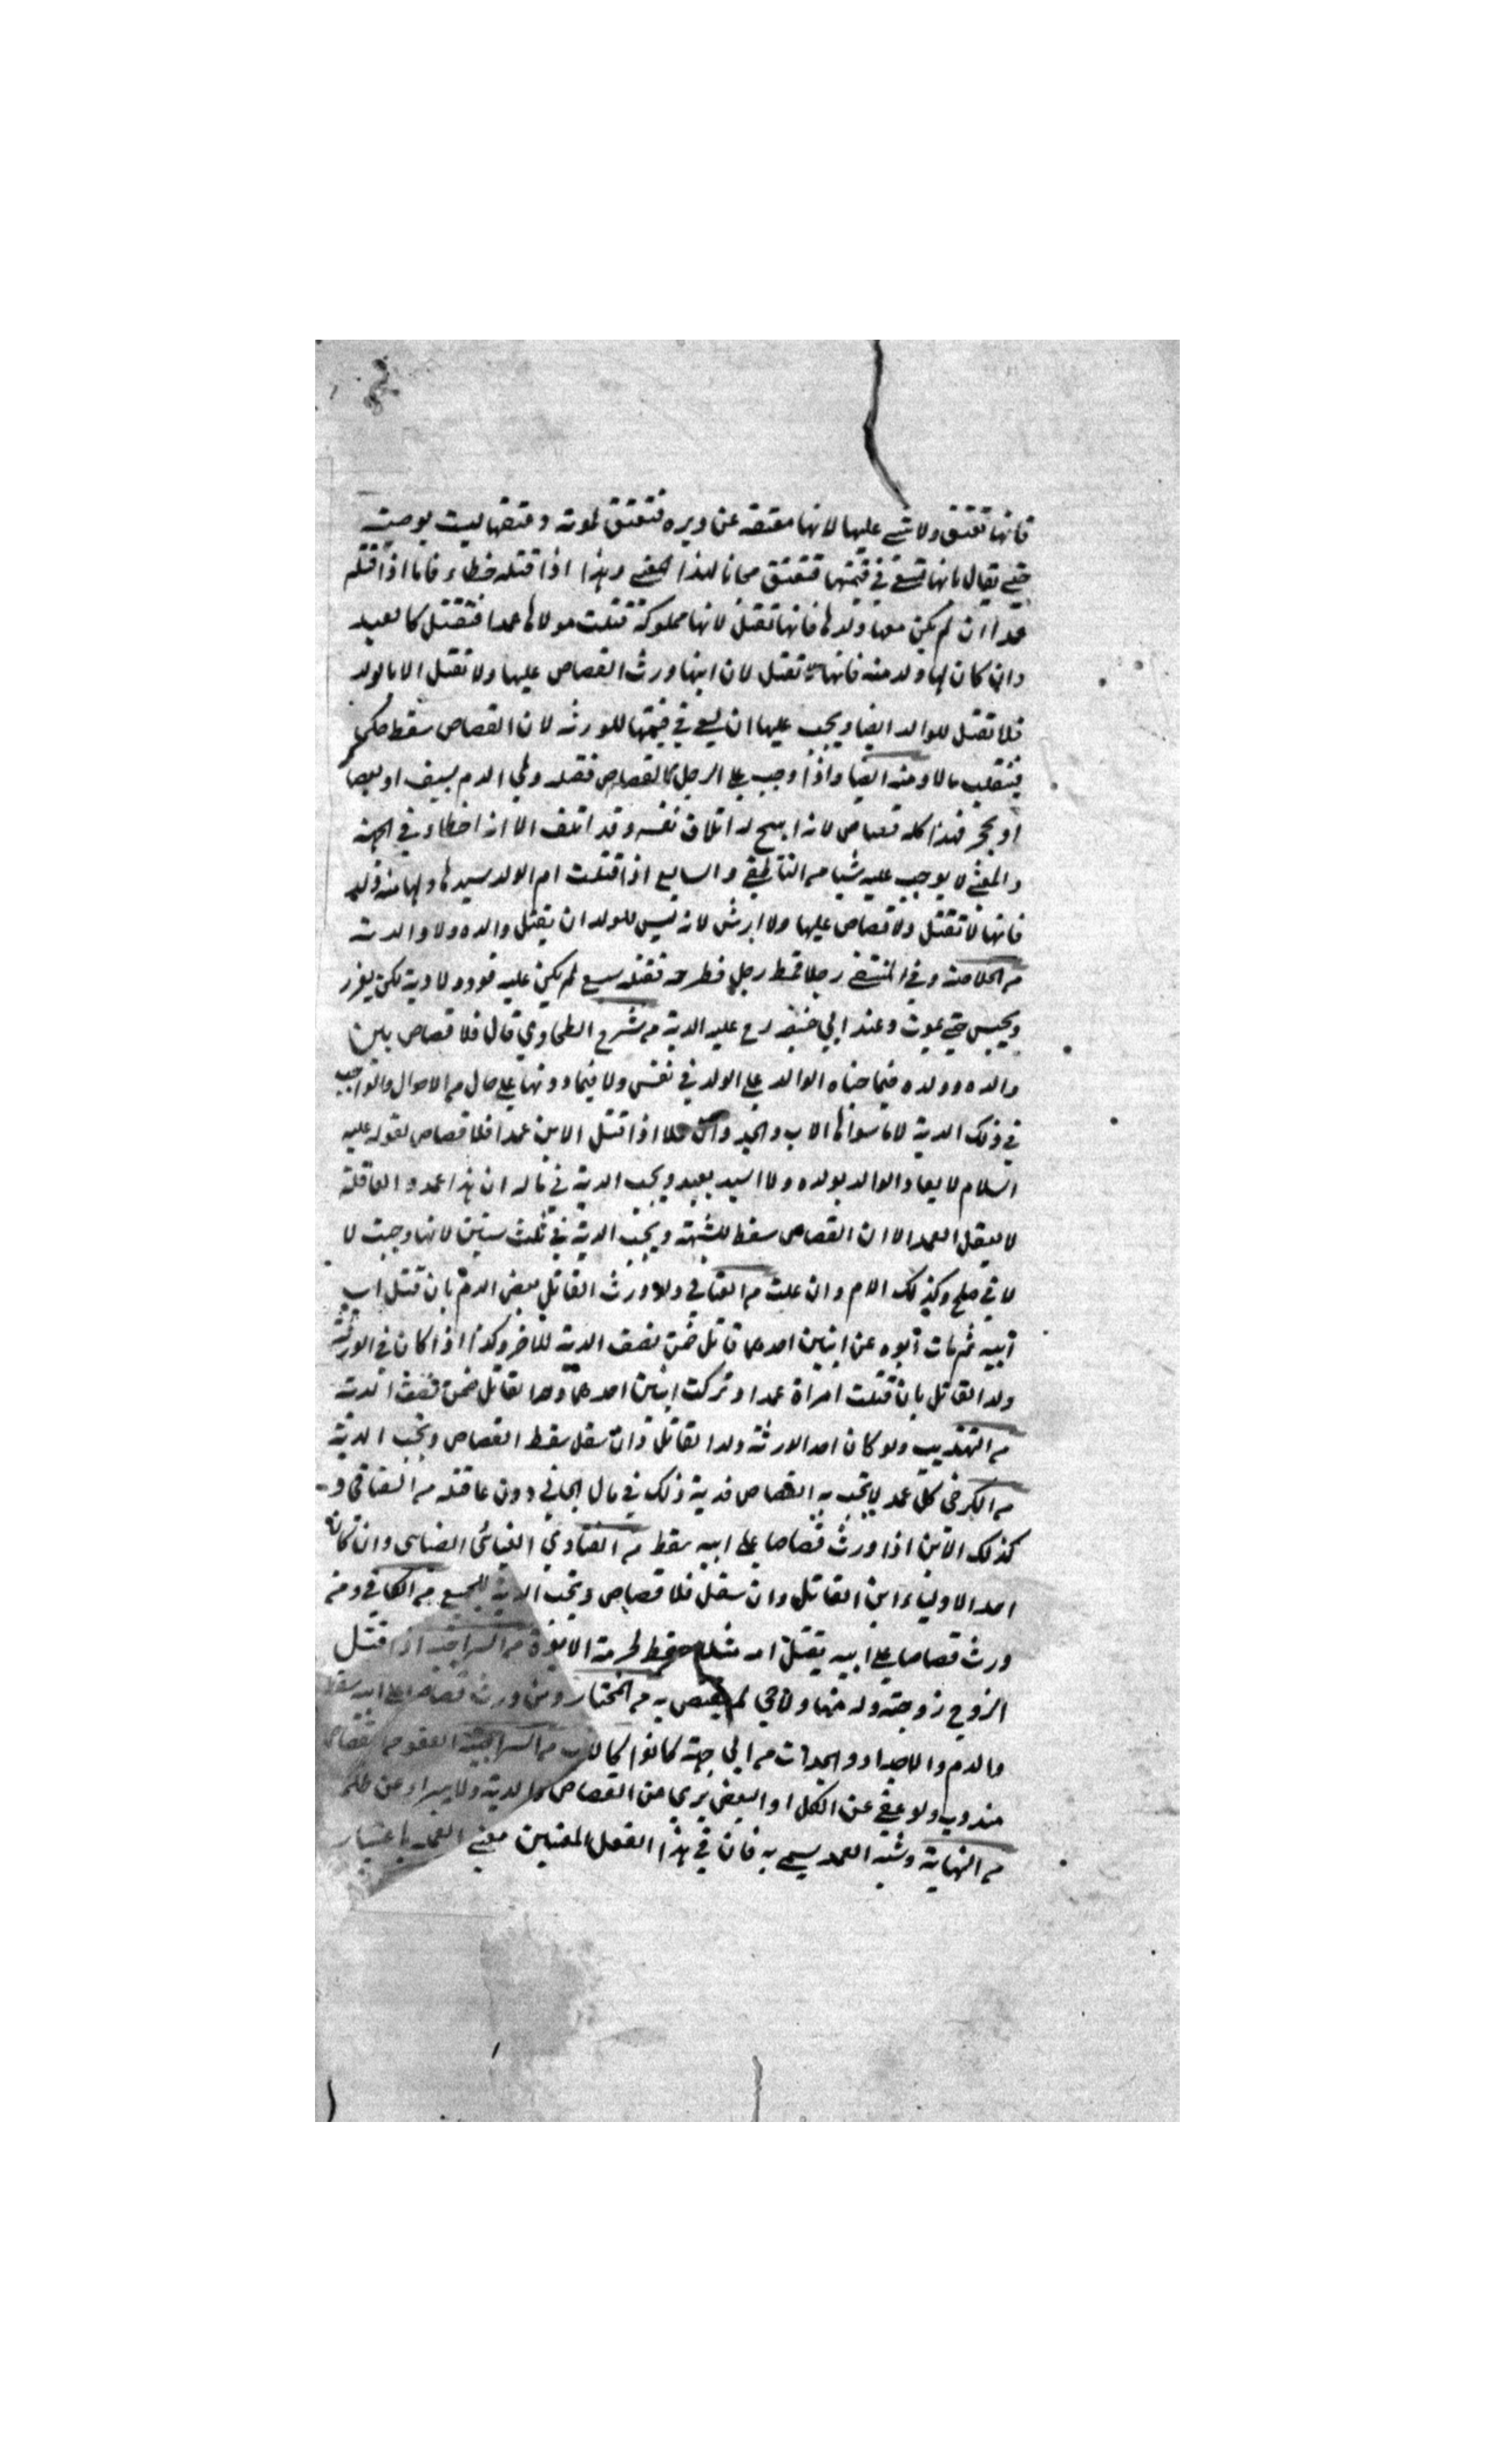 فانها تعتق ولا شئ عليها لانها معتقه عن دبره فتعتق لموته وعتقها ليست بوصية
حتى يقال بانها تسعى في قيمتها فتعتق مجانا لهذا المعنى وهذا اذا قتله خطاء فاما اذا قتله
عمدا ان لم يكن معها ولدها فانها تقتل لانها مملوكة قتلت مولاها عمدا فتقتل كالعبد
وان كان لها ولد منه فانها لا تقتل لان ابنها ورث القصاص عليها ولا تقتل الام بالولد
فلا تقتل للوالد ايضا ويجب عليها ان يسعى في قيمتها للورثه لان القصاص سقط حكما
فينقلب مالا ومنه ايضا واذا وجب على الرجل القصاص فقتله ولي الدم بسيف او بعصا
او بحجر فهذا كله قصاص لانه ابيح له اتلاف نفسه وقد اتلف الا انه اخطاء في الجهة
والمعنى لا يوجب عليه شيا من الناطفي والسابع اذا قتلت ام الولد سيدها ولها منه ولد
فانها لا تقتل ولا قصاص عليها ولا ارش لانه ليس للولد ان يقتل والده ولا والدته
من الخلاصة وفي المنتقى رجلا قمط رجل فطرحه فقتله سبع لم يكن عليه قود ولا دية لكن يعزر
ويحبس حتى يموت وعند ابي حنيفه رح عليه الدية من شرح الطحاوي قال فلا قصاص بين
والده وولده فيما جناه الوالد على الولد في نفس ولا فيما دونها على حال من الاحوال والواجب
في ذلك الدية لا ما سواها الاب والجد وان علا اذا قتل الابن عمدا فلا قصاص لقوله عليه
السلام لا يقاد الوالد بولده ولا السيد بعبده ويجب الدية في ماله ان هذا عمد والعاقلة
لا يعقل العمد الا ان القصاص سقط للشبهة ويجب الدية في ثلث سنين لانها وجبت لا
لا في صلح وكذلك الام وان علت من العتابي ولو ورث القاتل بعض الدم بان قتل اب
ابيه ثم مات ابوه عن ابنين احدهما قاتل ضمن نصف الدية للاخر وكذا اذا كان في الورثة
ولد القاتل بان قتلت امراة عمدا وتركت ابنين احدهما ولد القاتل ضمن نصف الدية
من التهذيب ولو كان احد الورثة ولد القاتل وان سفل سقط القصاص وتجب الدية
من الكرخي كل عمد لا يجب به القصاص فدية ذلك في مال الجاني دون عاقلته من العتابي و
كذلك الابن اذا ورث قصاصا على ابيه سقط من الفتاوي الغياثي العتابي وان كان
احد الاولياء ابن القاتل وان سفل فلا قصاص وتجب الدية للجميع من الكافي ومن
ورث قصاصا على ابيه يقتل امه مثلا سقط لحرمة الابوة من السراجية اذا قتل
الزوج زوجته وله منها ولد حي لم يقتص به من المختار ومن ورث قصاصا على ابيه سقط
والدم والاجداد والجدات من اي جهة كانوا كالاب من السراجية العفو من القصاص
مندوب ولو عفي عن الكل او البعض يرى من القصاص والدية ولا يبراء عن ظلمه
من النهاية وشبه العمد يسمى به فان في هذا الفعل المعنيين معنى العمد باعتبار